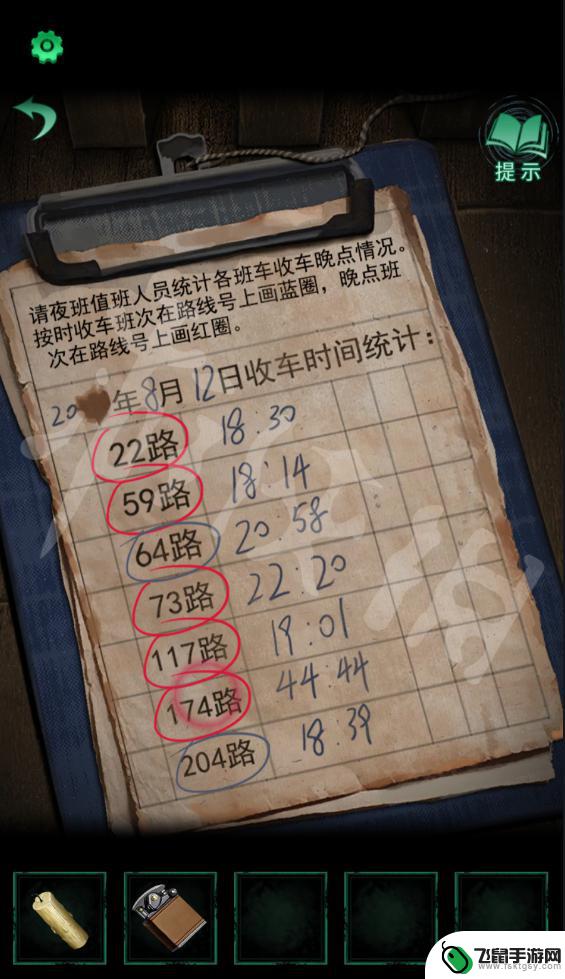 提示
请夜班值班人员统计各班车收车晚点情况。
按时收车班次在路线号上画蓝圈，晚点班
次在路线号上画红圈。
20 年8月12日收车时间统计：
22路 18:30
59路 18:14
64路 20:58
73路 22:20
117路 19:01
174路 44:44
204路 18:39
飞鼠手游网
www.fsktgsy.com